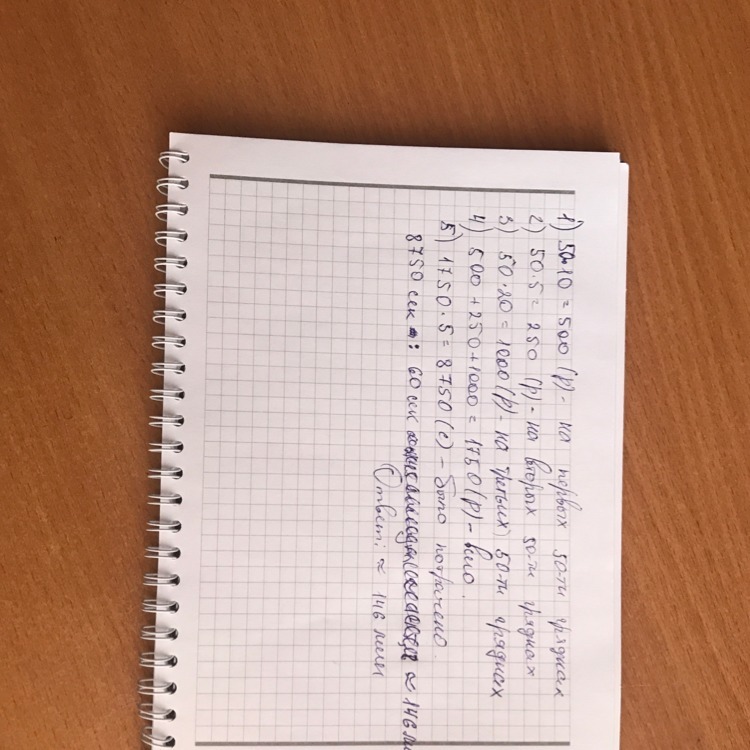 1) 50·10 = 500 (р) - на первых 50-ти грядках
2) 50·5 = 250 (р) - на вторых 50-ти грядках
3) 50·20 = 1000 (р) - на третьих 50-ти грядках
4) 500 + 250 + 1000 = 1750 (р) - было.
5) 1750·5 = 8750 (с) - было потрачено.
8750 сек : 60 сек ≈ 146 ми
Ответ: ≈ 146 мин